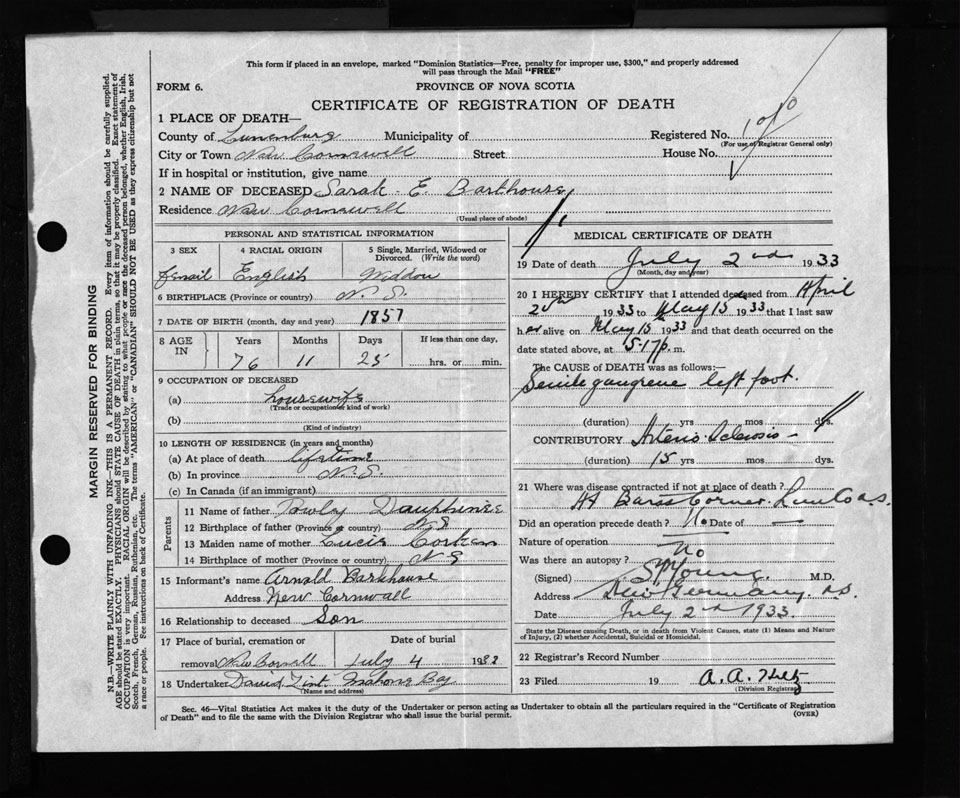 This form if placed in an envelope, marked "Dominion Statistics—Free, penalty for improper use, $300," and properly addressed
will pass through the Mail "FREE"
FORM 6.
PROVINCE OF NOVA SCOTIA
CERTIFICATE OF REGISTRATION OF DEATH
1 PLACE OF DEATH—
County of Lunenburg Municipality of Registered No.
(For use of Registrar General only)
City or Town New Cornwell Street House No.
If in hospital or institution, give name
2 NAME OF DECEASED Sarah E. Barkhouse
Residence New Cornwell
(Usual place of abode)
PERSONAL AND STATISTICAL INFORMATION
3 SEX 4 RACIAL ORIGIN 5 Single, Married, Widowed or Divorced. (Write the word)
femail English Widdow
6 BIRTHPLACE (Province or country) N. S.
7 DATE OF BIRTH (month, day and year) 1857
8 AGE IN Years Months Days If less than one day,
76 11 25 hrs. or min.
9 OCCUPATION OF DECEASED
(a) housewife
(Trade or occupation or kind of work)
(b)
(Kind of industry)
10 LENGTH OF RESIDENCE (in years and months)
(a) At place of death lifetime
(b) In province N. S.
(c) In Canada (if an immigrant)
Parents
11 Name of father Dauphinee
12 Birthplace of father (Province or country) N S
13 Maiden name of mother
14 Birthplace of mother (Province or country) N S
15 Informant's name Arnold Barkhouse
Address New Cornwall
16 Relationship to deceased Son
17 Place of burial, cremation or Date of burial
removal July 4 193
18 Undertaker David Mahone Bay
(Name and address)
MEDICAL CERTIFICATE OF DEATH
19 Date of death July 2nd 1933
(Month, day and year)
20 I HEREBY CERTIFY that I attended deceased from April
20th 1933 to May 15 1933 that I last saw
her alive on May 15 1933 and that death occurred on the
date stated above, at 5.17 p. m.
The CAUSE OF DEATH was as follows:—
Senile gangrene left foot.
(duration) yrs mos dys.
CONTRIBUTORY Arterio Sclerosis
(duration) 15 yrs mos. dys.
21 Where was disease contracted if not at place of death?
At Barss Corner
Did an operation precede death? No Date of —
Nature of operation
Was there an autopsy? No
(Signed) Young M.D.
Address New Germany N.S.
Date July 2nd 1933.
State the Disease causing Death, or in death from Violent Causes, state (1) Means and Nature
of Injury, (2) whether Accidental, Suicidal or Homicidal.
22 Registrar's Record Number
23 Filed 19 A. A.
(Division Registrar)
Sec. 46—Vital Statistics Act makes it the duty of the Undertaker or person acting as Undertaker to obtain all the particulars required in the "Certificate of Registration
of Death" and to file the same with the Division Registrar who shall issue the burial permit.
(OVER)
MARGIN RESERVED FOR BINDING
N.B.—WRITE PLAINLY WITH UNFADING INK—THIS IS A PERMANENT RECORD. Every item of information should be carefully supplied.
AGE should be stated EXACTLY. PHYSICIANS should STATE CAUSE OF DEATH in plain terms, so that it may be properly classified. Exact statement of
OCCUPATION is very important. RACIAL ORIGIN will be described by stating to what people or race the deceased person belonged, whether English, Irish,
Scotch, French, German, Russian, Ruthenian, etc. The terms "AMERICAN" or "CANADIAN" SHOULD NOT BE USED as they express citizenship but not
a race or people. See instructions on back of Certificate.